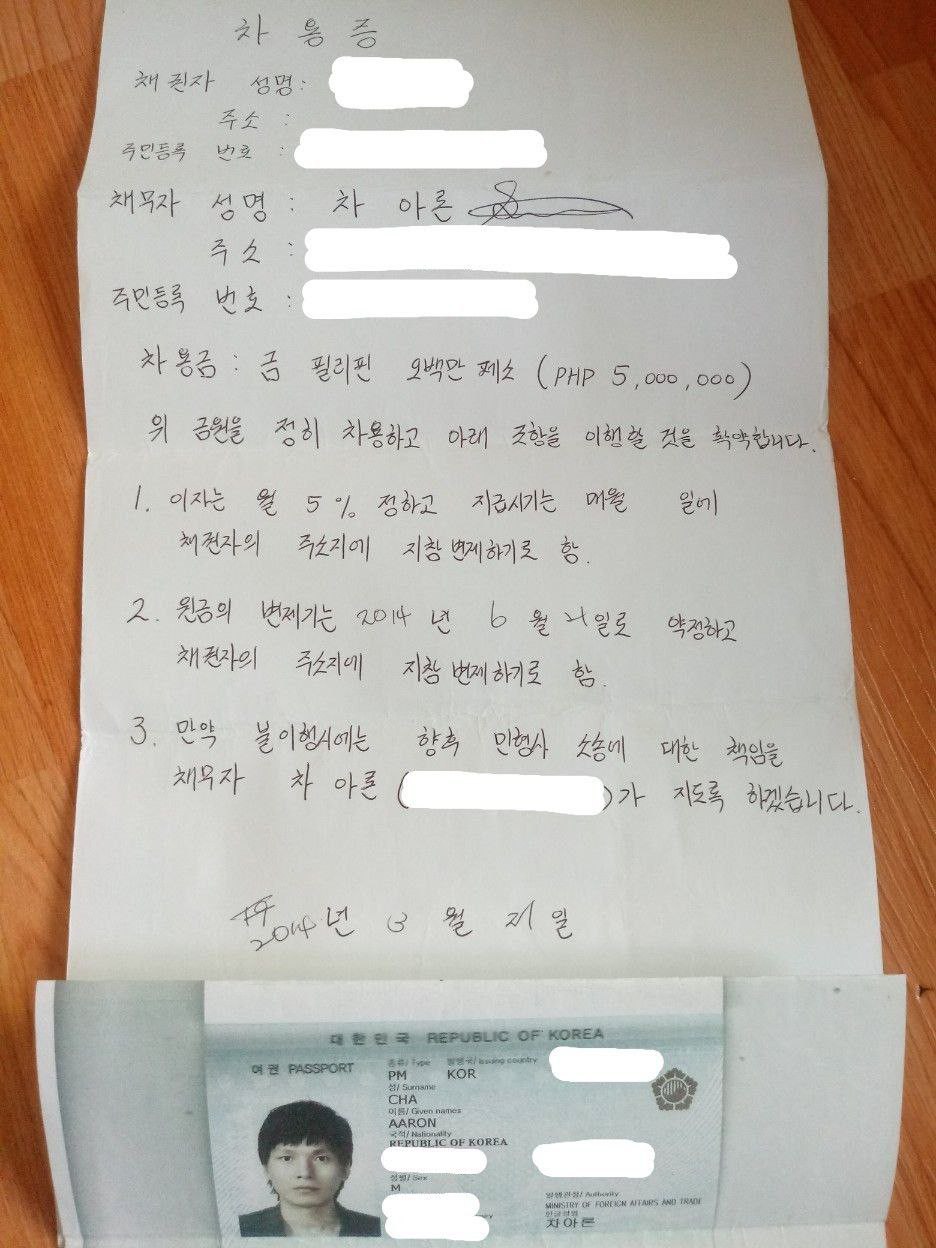 차용증
채권자 성명:
주소 :
주민등록 번호 :
채무자 성명 : 차 아론
주소 :
주민등록 번호 :
차용금 : 금 필리핀 오백만 페소 (PHP 5,000,000)
위 금원을 정히 차용하고 아래 조항을 이행할 것을 확약합니다.
1. 이자는 월 5% 정하고 지급시기는 매월 일에
채권자의 주소지에 지참 변제하기로 함.
2. 원금의 변제기는 2014년 6월 일로 약정하고
채권자의 주소지에 지참 변제하기로 함.
3. 만약 불이행시에는 향후 민형사 소송에 대한 책임을
채무자 차 아론 ( )가 지도록 하겠습니다.
2014년 3월 일
대한민국 REPUBLIC OF KOREA
여권 PASSPORT
종류/ Type 발행국/ Issuing country
PM KOR
성/ Surname
CHA
이름/ Given names
AARON
국적/ Nationality
REPUBLIC OF KOREA
성별/ Sex
M
발행관청/ Authority
MINISTRY OF FOREIGN AFFAIRS AND TRADE
한글성명
차아론